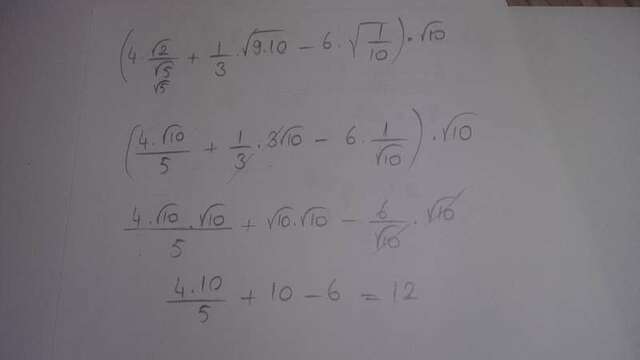 (4·√2/√5 + 1/3·√9·10 − 6·√1/10)·√10
√5
(4·√10/5 + 1/3·3√10 − 6·1/√10)·√10
4·√10·√10/5 + √10·√10 − 6/√10·√10
4·10/5 + 10 − 6 = 12